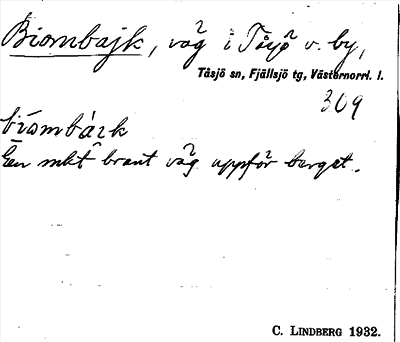 Biombajk, väg i Tåsjö v. by,
Tåsjö sn, Fjällsjö tg, Västernorrl. l.
309
En mkt brant väg uppför berget.
C. LINDBERG 1932.